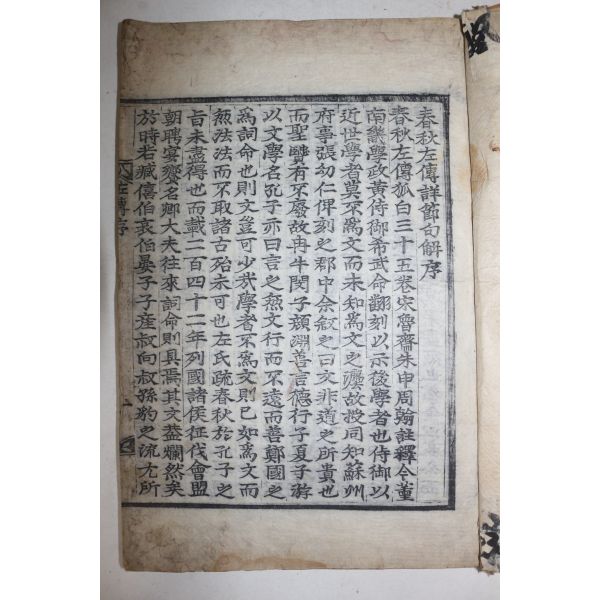 春秋左傳詳節句解序
春秋左傳狐白三十五卷宋魯齋朱申周翰註釋今董
南畿學政黃侍御希武命翻刻以示後學者也侍御以
近世學者莫不爲文而未知爲文之灋故授同知蘇州
府事張幼仁俾刻之郡中余叙之曰文非道之所貴也
而聖賢有不廢故冉牛閔子顔淵善言德行子夏子游
以文學名孔子亦曰言之無文行而不遠而善鄭國之
爲詞命也則文豈可少哉學者不爲文則已如爲文而
無法法而不取諸古殆未可也左氏疏春秋於孔子之
旨未盡得也而載二百四十二年列國諸侯征伐會盟
朝聘宴饗名卿大夫徃來詞命則具焉其文蓋爛然矣
於時若臧僖伯哀伯晏子子産叔向叔孫豹之流尤所
左傳序